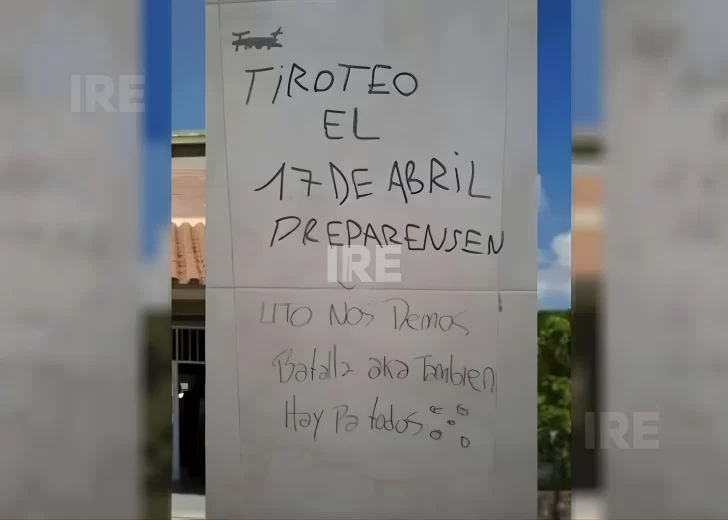 TiROTEO
EL
17 DE ABRiL
PREPARENSEN
UTO NOS Demos
Batalla aka También
Hay Pa todos
IRE
IRE
IRE